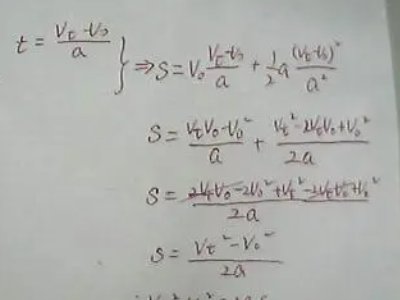 t = (Vt - V0)/a } ⇒ S = V0 (Vt - V0)/a + 1/2 a (Vt - V0)²/a²
S = (VtV0 - V0²)/a + (Vt² - 2VtV0 + V0²)/2a
S = (2VtV0 - 2V0² + Vt² - 2VtV0 + V0²)/2a
S = (Vt² - V0²)/2a